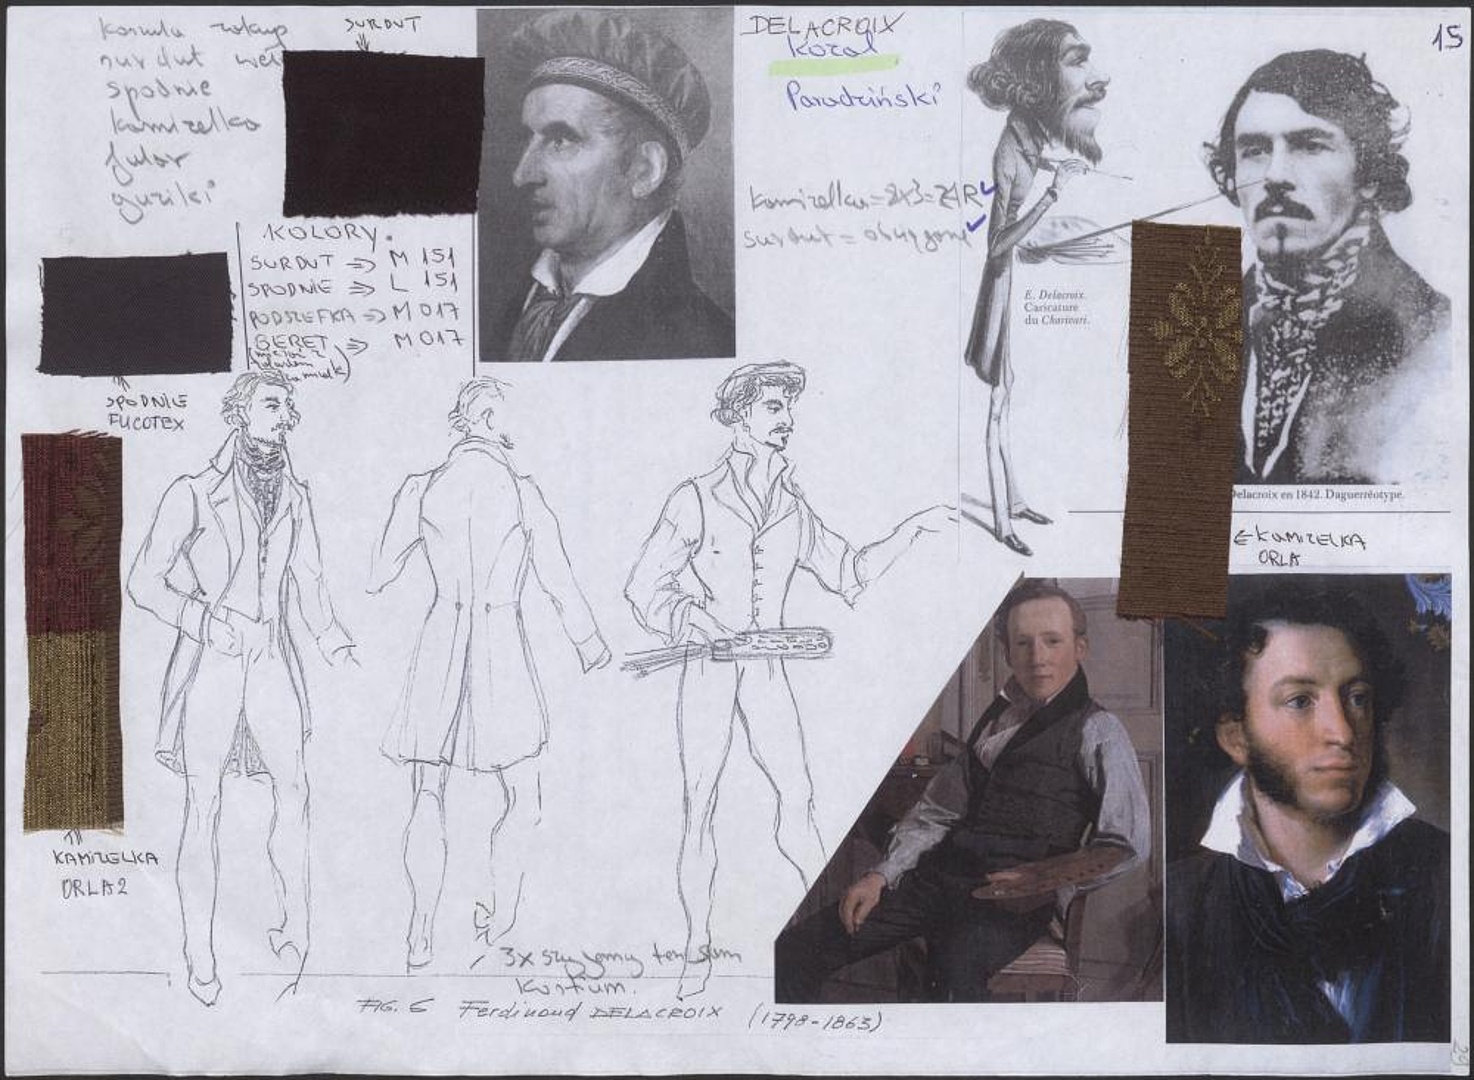 koszula zakup
surdut
spodnie
kamizelka
fular
guziki
SURDUT
DELACROIX
Kozal
Paradziński
15
kamizelka=
surdut =
KOLORY.
SURDUT => M 151
SPODNIE => L 151
PODSZEFKA => M 017
BERET => M 017
E. Delacroix.
Caricature
du Charivari.
SPODNIE
FUCOTEX
Delacroix en 1842. Daguerréotype.
KAMIZELKA
ORLA
KAMIZELKA
ORLA 2
3x szyjemy ten sam
kostium.
FIG. 6 Ferdinand DELACROIX (1798-1863)